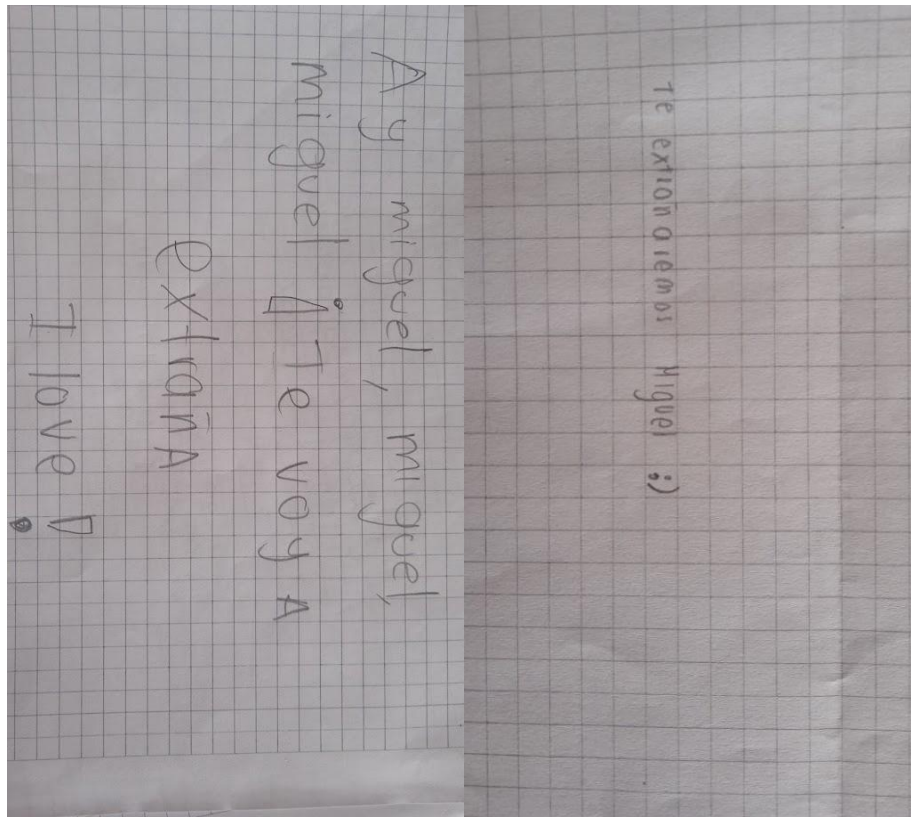 Ay miguel, miguel,
miguel ¡Te voy A
extrañA
I love!
Te extrañaremos Miguel ;)